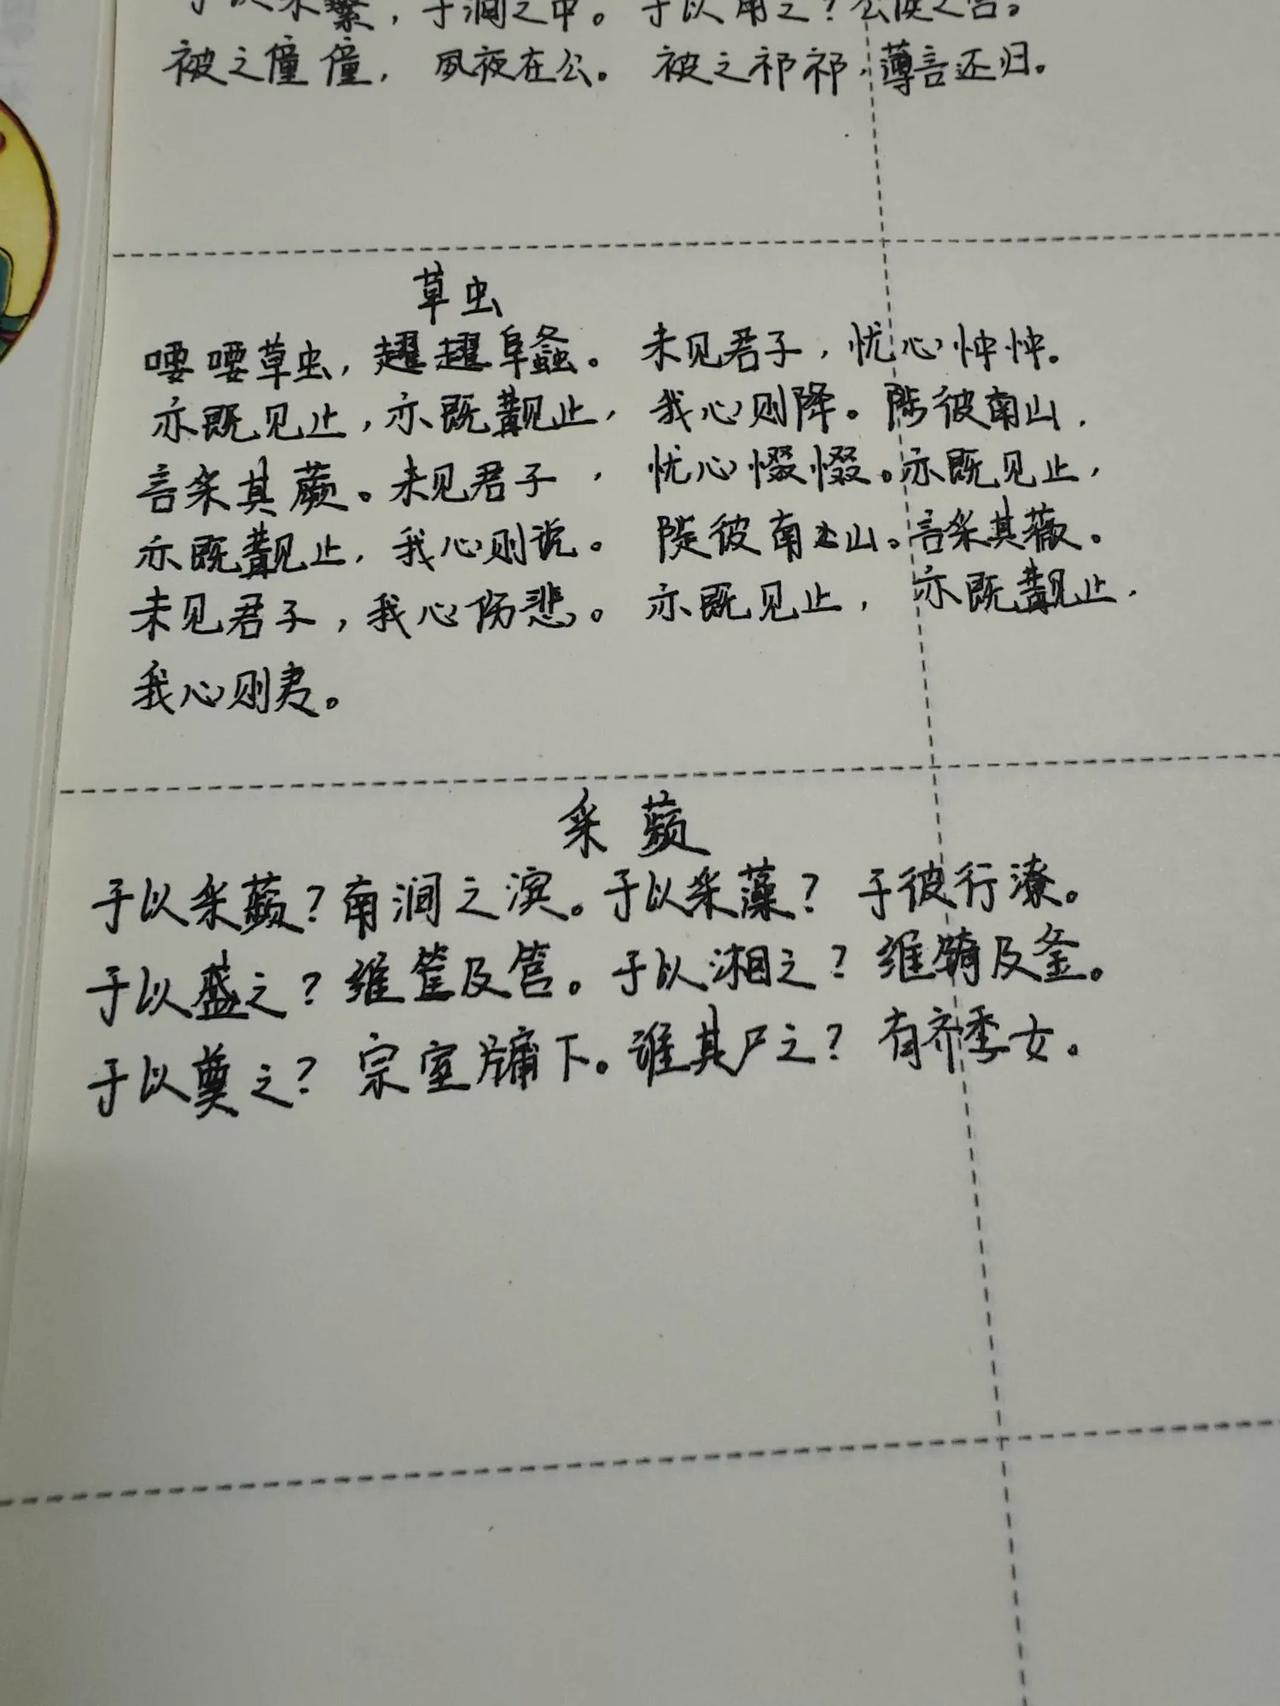 于以采蘩，于涧之中。于以用之？公侯之宫。
被之僮僮，夙夜在公。被之祁祁，薄言还归。
草虫
喓喓草虫，趯趯阜螽。未见君子，忧心忡忡。
亦既见止，亦既觏止，我心则降。陟彼南山，
言采其蕨。未见君子，忧心惙惙。亦既见止，
亦既觏止，我心则说。陟彼南山。言采其薇。
未见君子，我心伤悲。亦既见止，亦既觏止，
我心则夷。
采蘋
于以采蘋？南涧之滨。于以采藻？于彼行潦。
于以盛之？维筐及筥。于以湘之？维锜及釜。
于以奠之？宗室牖下。谁其尸之？有齐季女。